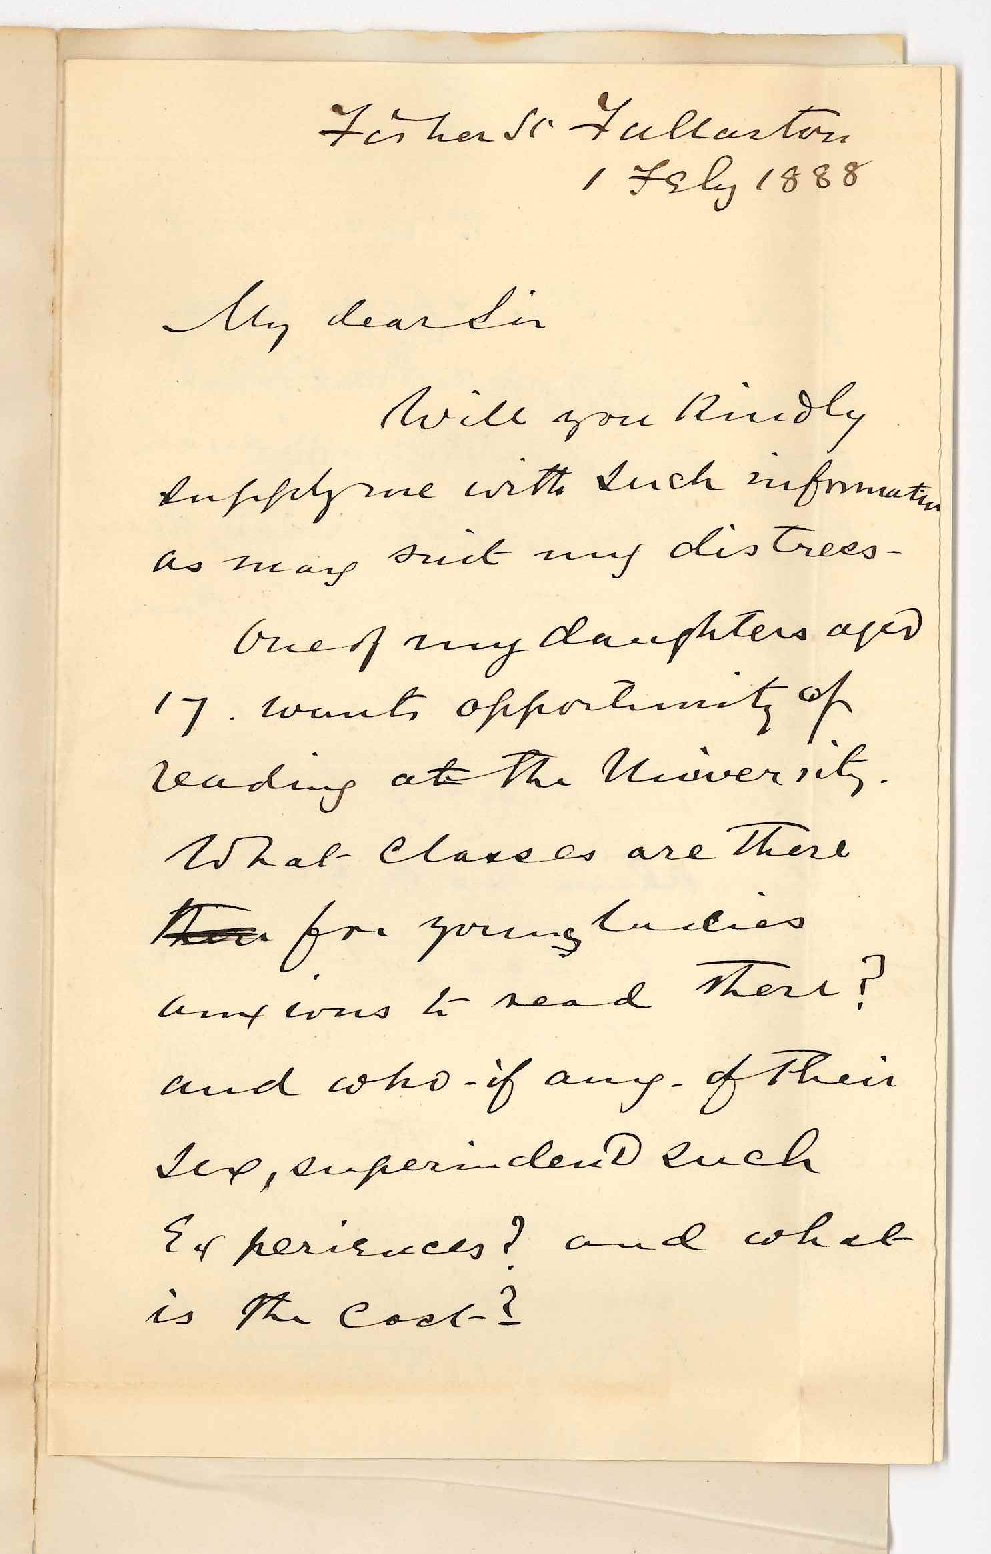 Fisher St Fullarton
1 Feby 1888
My dear Sir
Will you kindly
supply me with such information
as may suit my distress-
One of my daughters aged
17. wants opportunity of
reading at the University.
What classes are there
for young ladies
anxious to read there?
and who - if any - of their
sex, superindend such
Experiences? and what
is the cost?